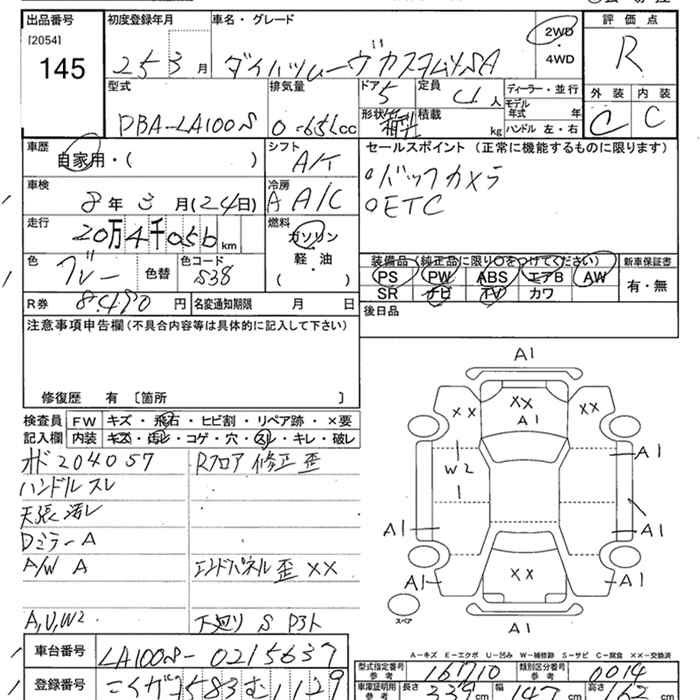 出品番号 初度登録年月 車名・グレード 評価点
[2054]
145 25 3月 ダイハツムーヴカスタムXSA 2WD・4WD R
型式 排気量 ドア 定員 ディーラー・並行 外装 内装
DBA-LA100S 0.65Lcc 5 4人 モデル年式 年 C C
形状 箱型 積載 kg ハンドル 左・右
車歴 シフト セールスポイント(正常に機能するものに限ります)
自家用・( ) A/T
車検 冷房 ○バックカメラ
8年3月(24日) A A/C ○ETC
走行 燃料
20万4千056km ガソリン
軽・油
( )
色 色コード 装備品(純正品に限り○をつけてください) 新車保証書
グレー 色替 S38 PS PW ABS エアB AW 有・無
SR ナビ TV カワ
R券 8,490円 名変通知期限 月 日 後日品
注意事項申告欄(不具合内容等は具体的に記入して下さい)
修復歴 有 〔箇所 〕
検査員 FW キズ・飛石・ヒビ割・リペア跡・×要
記入欄 内装 キズ・汚レ・コゲ・穴・スレ・キレ・破レ
オド204057 Rフロア修正歪
ハンドルスレ
天張汚レ
DミラーA
A/W A エンドパネル歪××
A,U,W2 下廻りS P3ト
A1
×× ×× ××
A1
A1
W2
A1 A1
××
A1 A1
スペア
A1
A-キズ E-エクボ U-凹み W-補修跡 S-サビ C-腐食 ××-交換済
車台番号 LA100S-0215637 型式指定番号 参考 16710 類別区分番号 参考 0014
登録番号 583む1129 車庫証明用 参考 長さ 339cm 幅 147cm 高さ 162cm